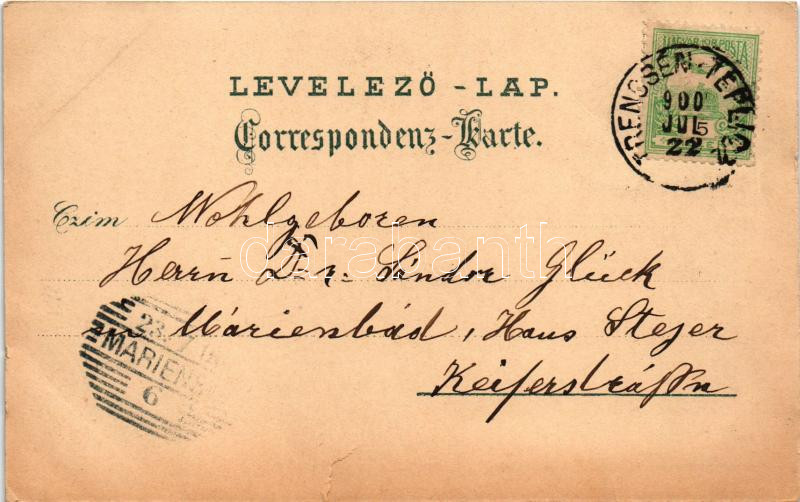 MAGYAR KIR. POSTA
5
TRENCSÉN-TEPLICZ
900
JUL
22
LEVELEZŐ-LAP.
Correspondenz-Karte.
Czim Wohlgeboren
Herrn Dr. Sándor Glück
in Marienbád, Haus Stejer
darabanth
23.
MARIEN
6